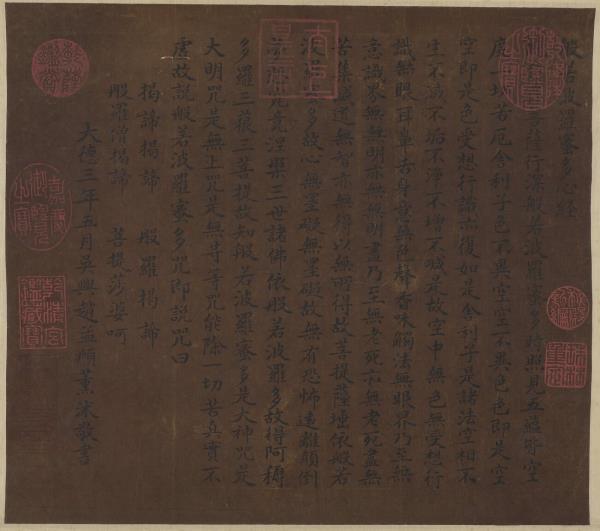 般若波羅蜜多心經
菩薩行深般若波羅蜜多時照見五蘊皆空
度一切苦厄舍利子色不異空空不異色色即是空
空即是色受想行識亦復如是舍利子是諸法空相不
生不滅不垢不淨不增不減是故空中無色無受想行
識無眼耳鼻舌身意無色聲香味觸法無眼界乃至無
意識界無無明亦無無明盡乃至無老死亦無老死盡無
苦集滅道無智亦無得以無所得故菩提薩埵依般若
波羅蜜多故心無罣礙無罣礙故無有恐怖遠離顛倒
夢想究竟涅槃三世諸佛依般若波羅多故得阿耨
多羅三藐三菩提故知般若波羅蜜多是大神咒是
大明咒是無上咒是無等等咒能除一切苦真實不
虛故說般若波羅蜜多咒即說咒曰
揭諦揭諦 般羅揭諦
般羅僧揭諦 菩提莎婆呵
大德三年五月吳興趙孟頫薰沐敬書
乾隆鑑賞
嘉慶御覽之寶
乾清宮鑑藏寶